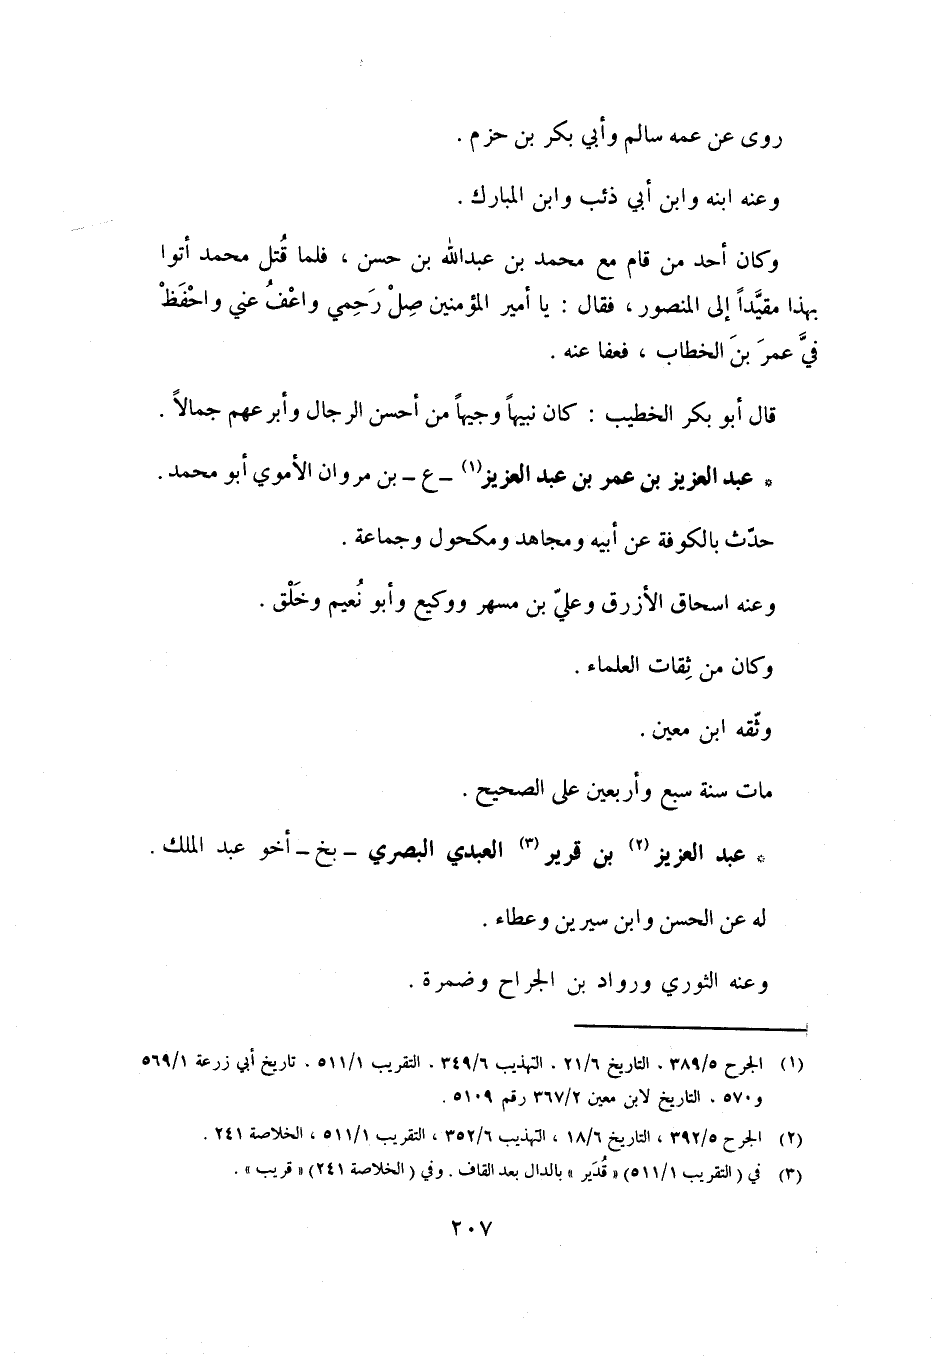 روى عن عمه سالم وأبي بكر بن حزم .
وعنه ابنه وابن أبي ذئب وابن المبارك .
وكان أحد من قام مع محمد بن عبدالله بن حسن ، فلما قُتل محمد أتوا
بهذا مقيَّداً إلى المنصور ، فقال : يا أمير المؤمنين صِلْ رَحِمي واعْفُ عني واحْفَظْ
فيَّ عمرَ بنَ الخطاب ، فعفا عنه .
قال أبو بكر الخطيب : كان نبيهاً وجيهاً من أحسن الرجال وأبرعهم جمالاً .
* عبد العزيز بن عمر بن عبد العزيز(١) ـ ع ـ بن مروان الأموي أبو محمد .
حدّث بالكوفة عن أبيه ومجاهد ومكحول وجماعة .
وعنه اسحاق الأزرق وعليّ بن مسهر ووكيع وأبو نُعيم وخَلْق .
وكان من ثِقات العلماء .
وثّقه ابن معين .
مات سنة سبع وأربعين على الصحيح .
* عبد العزيز (٢) بن قرير (٣) العبدي البصري ـ بخ ـ أخو عبد الملك .
له عن الحسن وابن سيرين وعطاء .
وعنه الثوري ورواد بن الجراح وضمرة .
(١) الجرح ٣٨٩/٥ . التاريخ ٢١/٦ . التهذيب ٣٤٩/٦ . التقريب ٥١١/١ . تاريخ أبي زرعة ٥٦٩/١
و٥٧٠ . التاريخ لابن معين ٣٦٧/٢ رقم ٥١٠٩ .
(٢) الجرح ٣٩٢/٥ ، التاريخ ١٨/٦ ، التهذيب ٣٥٢/٦ ، التقريب ٥١١/١ ، الخلاصة ٢٤١ .
(٣) في ( التقريب ٥١١/١) « قُدَير » بالدال بعد القاف . وفي ( الخلاصة ٢٤١) « قريب » .
٢٠٧